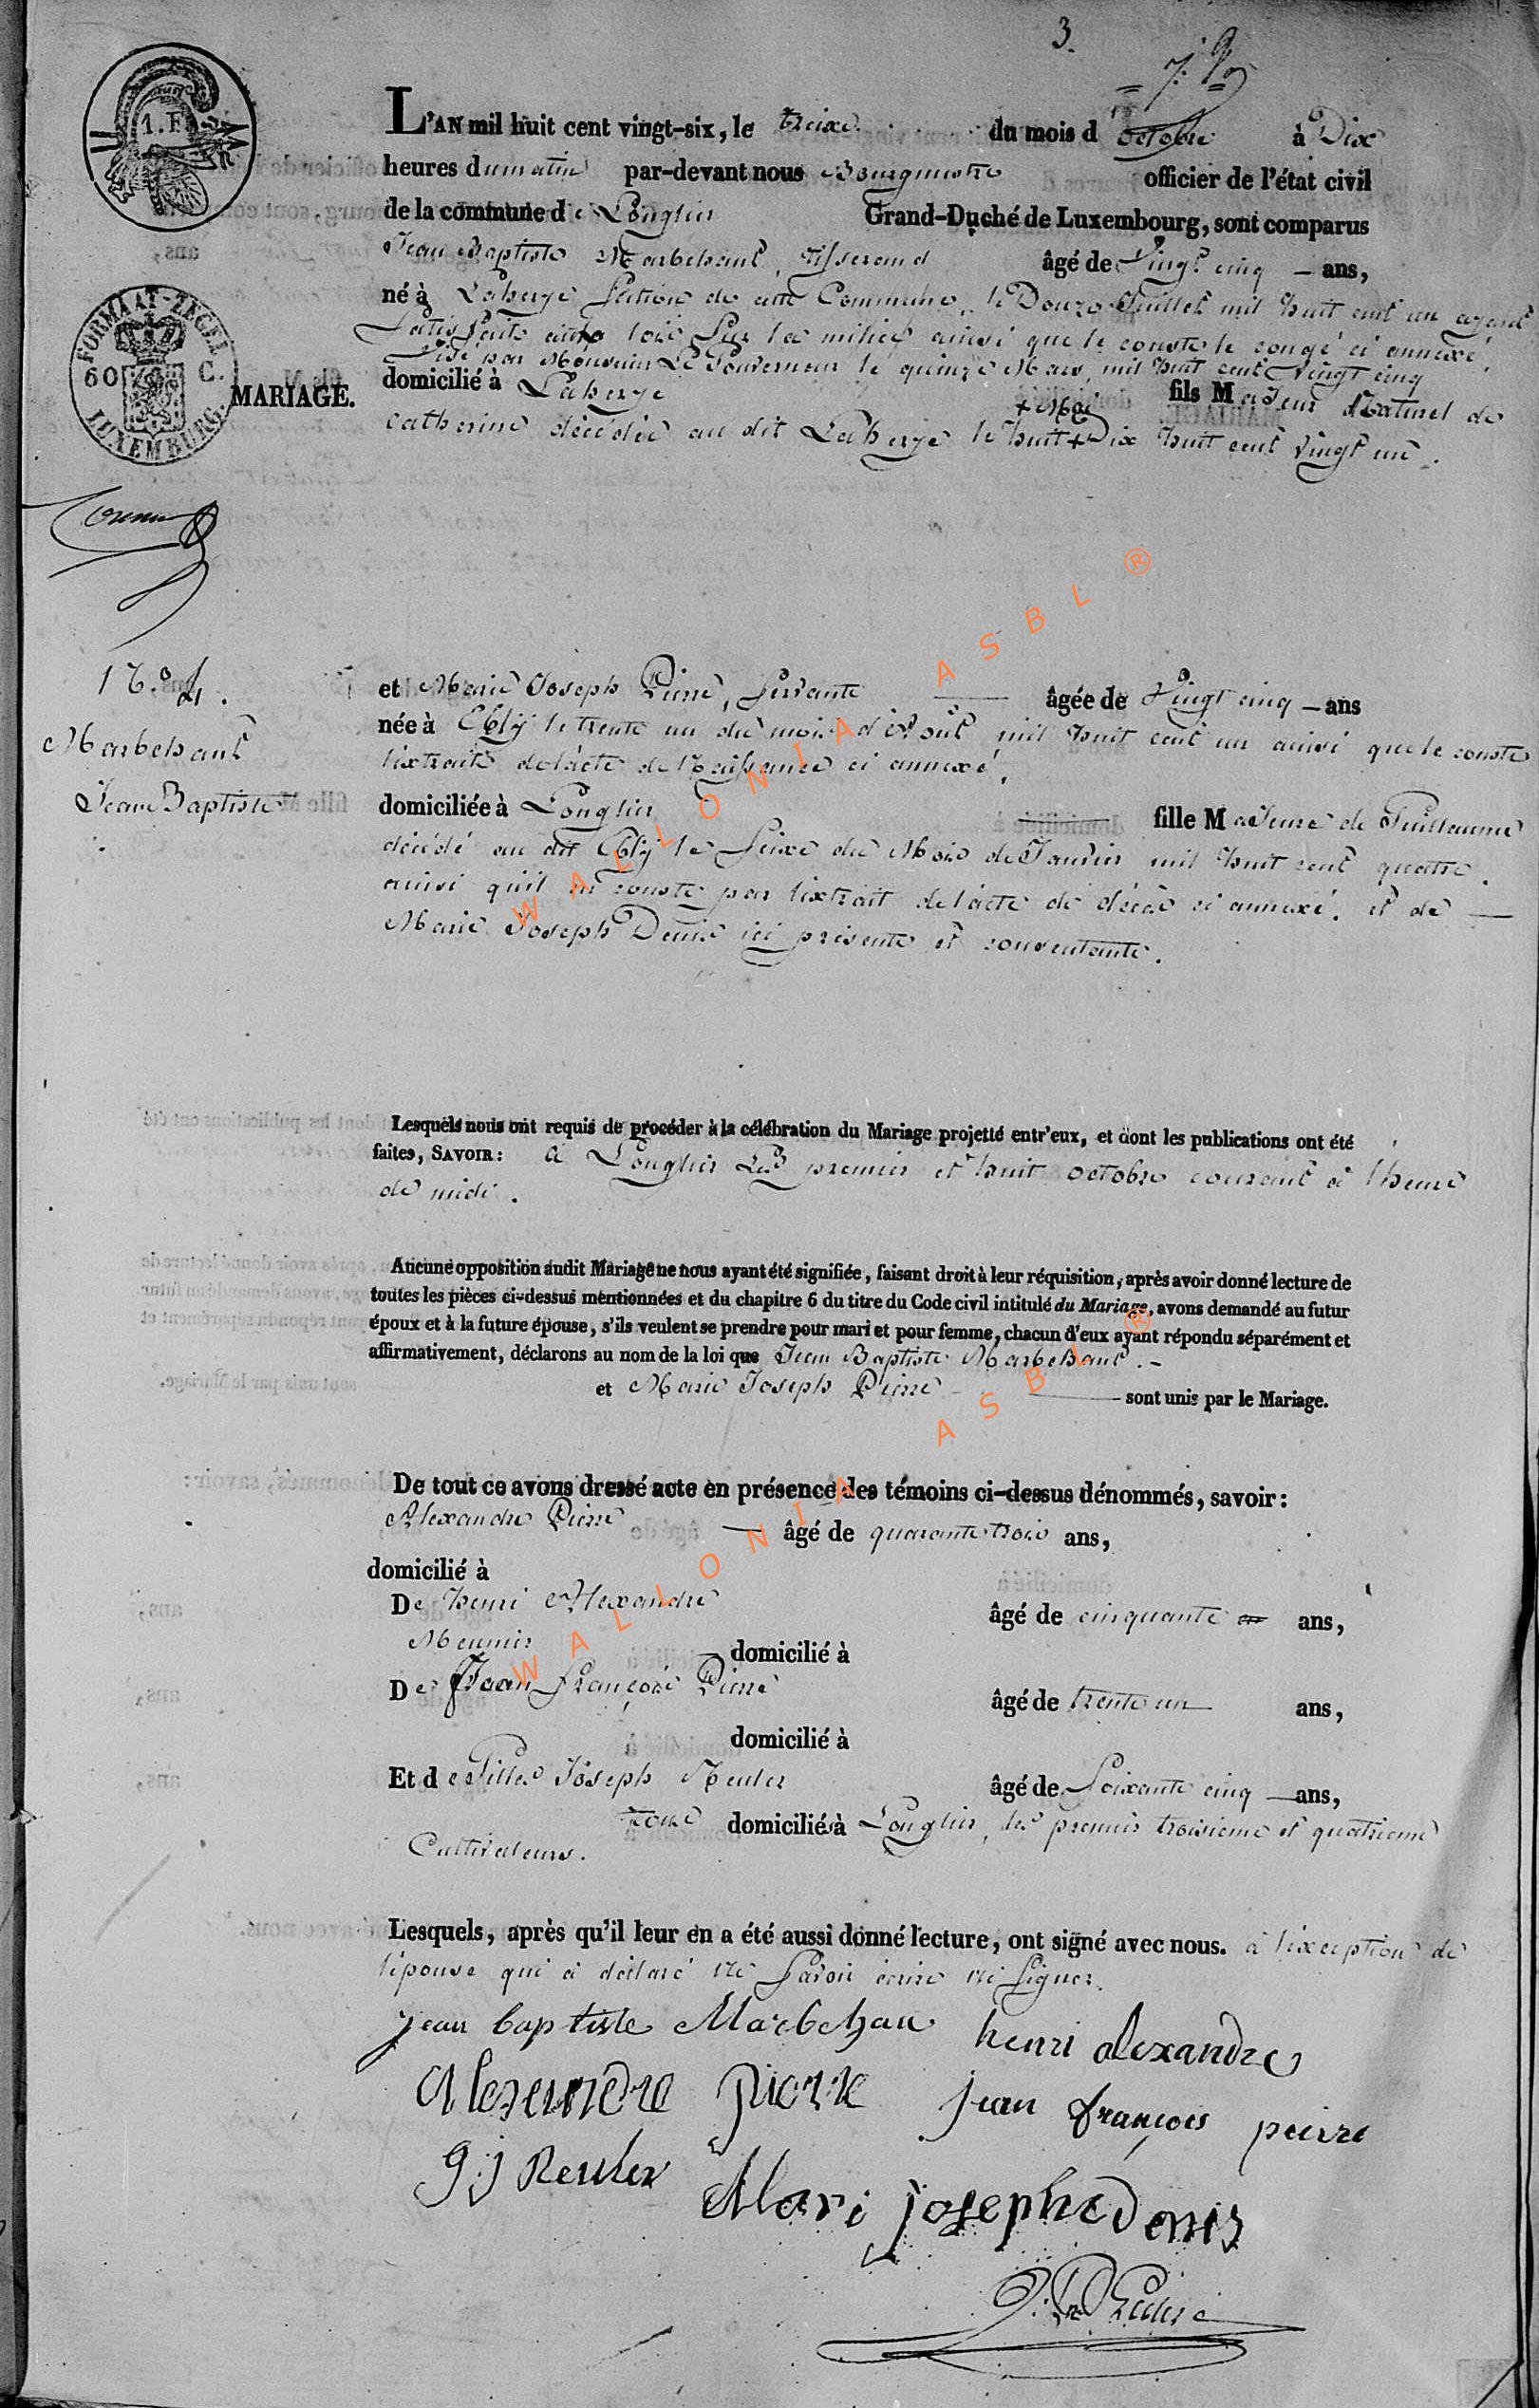 3.
1. F
L'AN mil huit cent vingt-six, le treize du mois d octobre à Dix
heures du matin par-devant nous Bourgmestre officier de l'état civil
de la commune de Longlier Grand-Duché de Luxembourg, sont comparus
Jean Baptiste Marbehant, tisserand âgé de Vingt cinq — ans,
né à Laherye Section de cette Commune, le Douze Juillet mil huit cent un ayant
Satisfaite aux loix Sur la milice ainsi que le conste le congé ci annexé,
Visé par Monsieur Le Gouverneur le quinze Mars mil huit cent Vingt cinq
FORMAAT-ZEGEL
60 C.
LUXEMBURG.
MARIAGE.
domicilié à Laherye fils Majeur Naturel de
+ Mai
Catherine décédée au dit Laherye le huit + Dix huit cent Vingt un.
N.° 4.
Marbehant
Jean Baptiste
et Marie Joseph Pierre, Servante — âgée de Vingt cinq — ans
née à Ebly le trente un du mois d'Août mil huit cent un ainsi que le conste
l'extrait de l'acte de Naissance ci annexé,
domiciliée à Longlier — fille Majeure de Guillaume
décédé au dit Ebly le Seize du Mois de Janvier mil huit cent quatre.
ainsi qu'il en conste par l'extrait de l'acte de décès ci annexé. et de —
Marie Joseph Denis ici présente et consentante.
Lesquels nous ont requis de procéder à la célébration du Mariage projetté entr'eux, et dont les publications ont été
faites, SAVOIR : à Longlier Les premier et huit octobre courant à l'heure
de midi.
Aucune opposition audit Mariage ne nous ayant été signifiée, faisant droit à leur réquisition, après avoir donné lecture de
toutes les pièces ci-dessus mentionnées et du chapitre 6 du titre du Code civil intitulé du Mariage, avons demandé au futur
époux et à la future épouse, s'ils veulent se prendre pour mari et pour femme, chacun d'eux ayant répondu séparément et
affirmativement, déclarons au nom de la loi que Jean Baptiste Marbehant. —
et Marie Joseph Pierre — sont unis par le Mariage.
De tout ce avons dressé acte en présence des témoins ci-dessus dénommés, savoir :
Alexandre Pierre — âgé de quarante trois ans,
domicilié à
De henri Alexandre âgé de cinquante ans,
Meunier domicilié à
De Jean françois Pierre âgé de trente un ans,
domicilié à
Et de Gilles Joseph Reuter âgé de Soixante cinq — ans,
tous domiciliés à Longlier, les premier troisieme et quatrieme
Cultivateurs.
Lesquels, après qu'il leur en a été aussi donné lecture, ont signé avec nous. à l'exception de
l'épouse qui a déclaré ne Savoir écrire ni Signer.
jean baptiste Marbehan henri alexandre
Alexandre pierre jean françois peirre
g:j Reuter Mari josephe denis
WALLONIA ASBL ®
WALLONIA ASBL ®